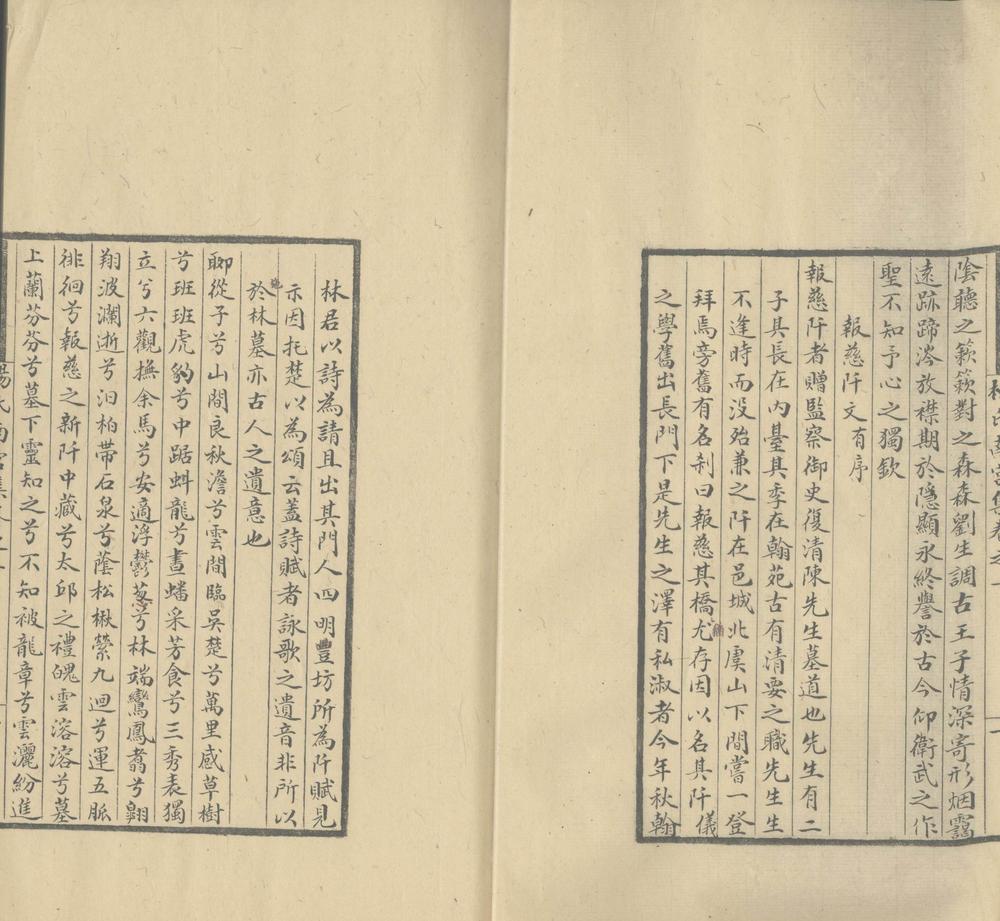 陰聽之簌簌對之森森劉生調古王子情深寄形烟靄
遠跡蹄涔放襟期於隱顯永終譽於古今仰衛武之作
聖不知予心之獨欽
報慈阡文有序
報慈阡者贈監察御史復清陳先生墓道也先生有二
子其長在内臺其季在翰苑古有清要之職先生生
不逢時而没殆兼之阡在邑城北虞山下間嘗一登
拜焉旁舊有名刹曰報慈其橋尤存因以名其阡儀
之學舊出長門下是先生之澤有私淑者今年秋翰
林君以詩為請且出其門人四明豐坊所為阡賦見
示因托楚以為頌云盖詩賦者詠歌之遺音非所以
於林墓亦古人之遺意也
聊從子兮山間良秋澹兮雲間臨吳楚兮萬里感草樹
兮班班虎豹兮中踞蚪龍兮晝蟠采芳食兮三秀表獨
立兮六觀撫余馬兮安適浮鬱葱兮林端鸞鳳翥兮翺
翔波瀾逝兮汩柏帶石泉兮蔭松楸縈九迴兮運五脈
徘徊兮報慈之新阡中藏兮太邱之禮魄雲溶溶兮墓
上蘭芬芬兮墓下靈知之兮不知被龍章兮雲灑紛進